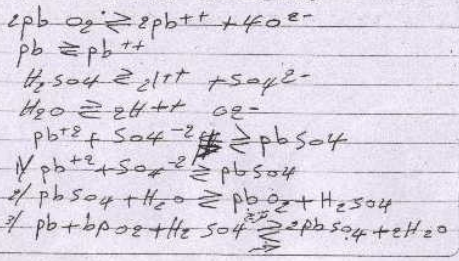 2pb O2 ⇌ 2pb++ + 4O2-
pb ⇌ pb++
H2SO4 ⇌ 21++ + SO42-
H2O ⇌ 2H++ O2-
pb+2 + SO4-2 ⇌ pbSO4
1/ pb+2 + SO4-2 ⇌ pbSO4
2/ pbSO4 + H2O ⇌ pbO2 + H2SO4
3/ pb + bpO2 + H2SO4 ⇌ 2pbSO4 + 2H2O